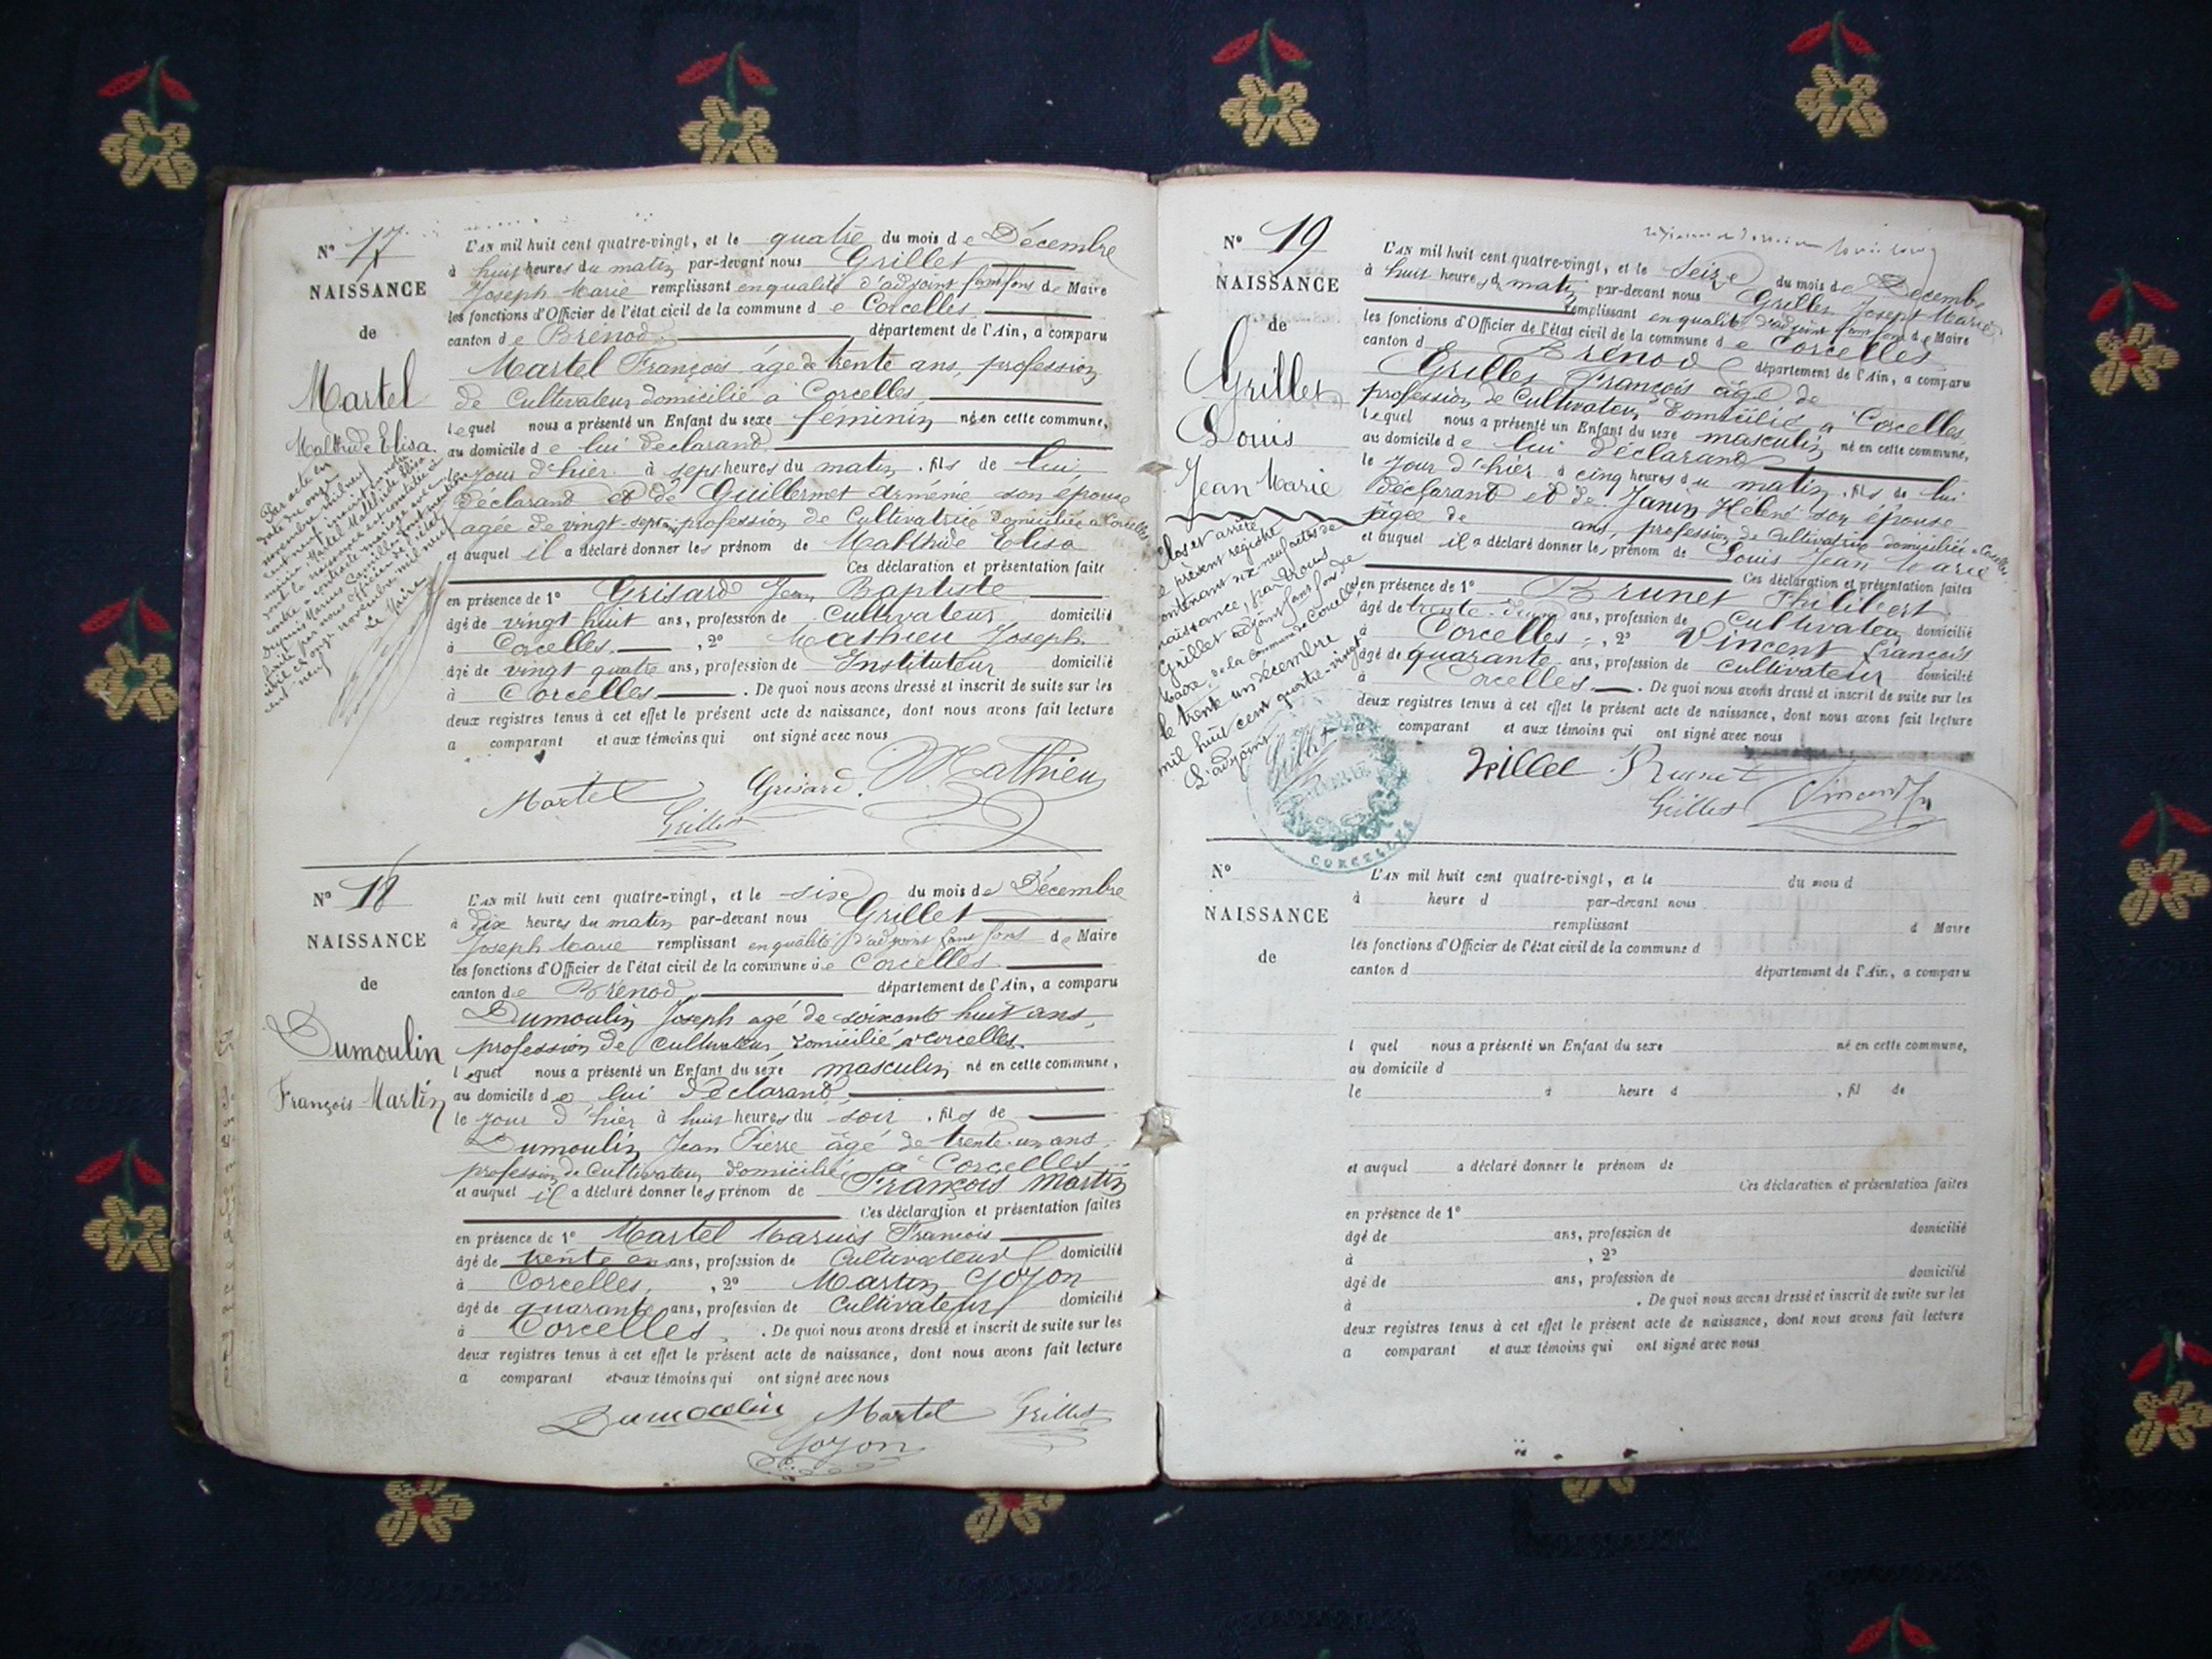 N° 17
NAISSANCE
de
Martel
Mathilde Elisa
L'AN mil huit cent quatre-vingt, et le quatre du mois de Décembre
à huit heures du matin par-devant nous Grillet
Joseph Marie remplissant en qualité d'adjoint de Maire
les fonctions d'Officier de l'état civil de la commune de Corcelles
canton de Brénod département de l'Ain, a comparu
Martel François âgé de trente ans, profession
de Cultivateur domicilié à Corcelles
lequel nous a présenté un Enfant du sexe féminin né en cette commune,
au domicile de lui déclarand
le jour d'hier à sept heures du matin, fils de lui
déclarand et de Guillermet Arménie son épouse
agée de vingt-sept ans profession de Cultivatrice domiciliée a Corcelles
et auquel il a déclaré donner les prénom de Malthide Elisa
Ces déclaration et présentation faite
en présence de 1° Grisard Jean Baptiste
âgé de vingt huit ans, profession de Cultivateur domicilié
à Corcelles, 2° Mathieu Joseph
âgé de vingt quatre ans, profession de Instituteur domicilié
à Corcelles. De quoi nous avons dressé et inscrit de suite sur les
deux registres tenus à cet effet le présent acte de naissance, dont nous avons fait lecture
a comparant et aux témoins qui ont signé avec nous
Martel Grisard Mathieu
Grillet
N° 18
NAISSANCE
de
Dumoulin
François Martin
L'AN mil huit cent quatre-vingt, et le six du mois de Décembre
à dix heures du matin par-devant nous Grillet
Joseph Marie remplissant en qualité d'adjoint de Maire
les fonctions d'Officier de l'état civil de la commune de Corcelles
canton de Brénod département de l'Ain, a comparu
Dumoulin Joseph agé de soixante huit ans,
profession de Cultivateur domicilié a Corcelles.
lequel nous a présenté un Enfant du sexe masculin né en cette commune,
au domicile de lui déclarand,
le jour d'hier à huit heures du soir, fils de
Dumoulin Jean Pierre âgé de trente-un ans,
profession de Cultivateur domicilié à Corcelles
et auquel il a déclaré donner les prénom de François Martin
Ces déclaration et présentation faites
en présence de 1° Martel Marius François
âgé de trente ans, profession de Cultivateur domicilié
à Corcelles, 2° Martin Goyon
âgé de quarante ans, profession de Cultivateur domicilié
à Corcelles. De quoi nous avons dressé et inscrit de suite sur les
deux registres tenus à cet effet le présent acte de naissance, dont nous avons fait lecture
a comparant et aux témoins qui ont signé avec nous
Dumoulin Martel Grillet
Goyon
N° 19
NAISSANCE
de
Grillet
Louis
Jean Marie
Clos et arrêté
le présent registre
contenant dix neuf actes de
naissance, par nous
Grillet adjoint
Maire de la commune de Corcelles
le trente un décembre
mil huit cent quatre-vingt
L'adjoint
Grillet
CORCELLES
L'AN mil huit cent quatre-vingt, et le Seize du mois de Décembre
à huit heures du matin par-devant nous Grillet Joseph Marie
remplissant en qualité d'adjoint de Maire
les fonctions d'Officier de l'état civil de la commune de Corcelles
canton de Brénod département de l'Ain, a comparu
Grillet François âgé de
profession de Cultivateur domicilié a Corcelles
lequel nous a présenté un Enfant du sexe masculin né en cette commune,
au domicile de lui déclarand
le jour d'hier à cinq heures du matin, fils de lui
déclarand et de Janin Hélène son épouse
âgée de ans, profession de Cultivatrice domiciliée a Corcelles
et auquel il a déclaré donner les prénom de Louis Jean Marie
Ces déclaration et présentation faites
en présence de 1° Brunet Philibert
âgé de trente ans, profession de Cultivateur domicilié
à Corcelles, 2° Vincent François
âgé de quarante ans, profession de Cultivateur domicilié
à Corcelles. De quoi nous avons dressé et inscrit de suite sur les
deux registres tenus à cet effet le présent acte de naissance, dont nous avons fait lecture
a comparant et aux témoins qui ont signé avec nous
Grillet Brunet
Grillet Vincent
N°
NAISSANCE
de
L'AN mil huit cent quatre-vingt, et le du mois d
à heure d par-devant nous
remplissant d Maire
les fonctions d'Officier de l'état civil de la commune d
canton d département de l'Ain, a comparu
l quel nous a présenté un Enfant du sexe né en cette commune,
au domicile d
le à heure d , fil de
et auquel a déclaré donner le prénom de
Ces déclaration et présentation faites
en présence de 1°
âgé de ans, profession de domicilié
à , 2°
âgé de ans, profession de domicilié
à . De quoi nous avons dressé et inscrit de suite sur les
deux registres tenus à cet effet le présent acte de naissance, dont nous avons fait lecture
a comparant et aux témoins qui ont signé avec nous